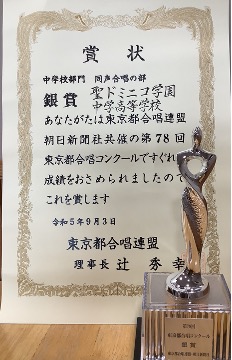 賞状
中学校部門 同声合唱の部
銀賞 聖ドミニコ学園
中学高等学校
あなたがたは東京都合唱連盟
朝日新聞社共催の第78回
東京都合唱コンクールですぐれた
成績をおさめられましたので
これを賞します
令和5年9月3日
東京都合唱連盟
理事長 辻 秀幸
第78回
東京都合唱コンクール
銀賞